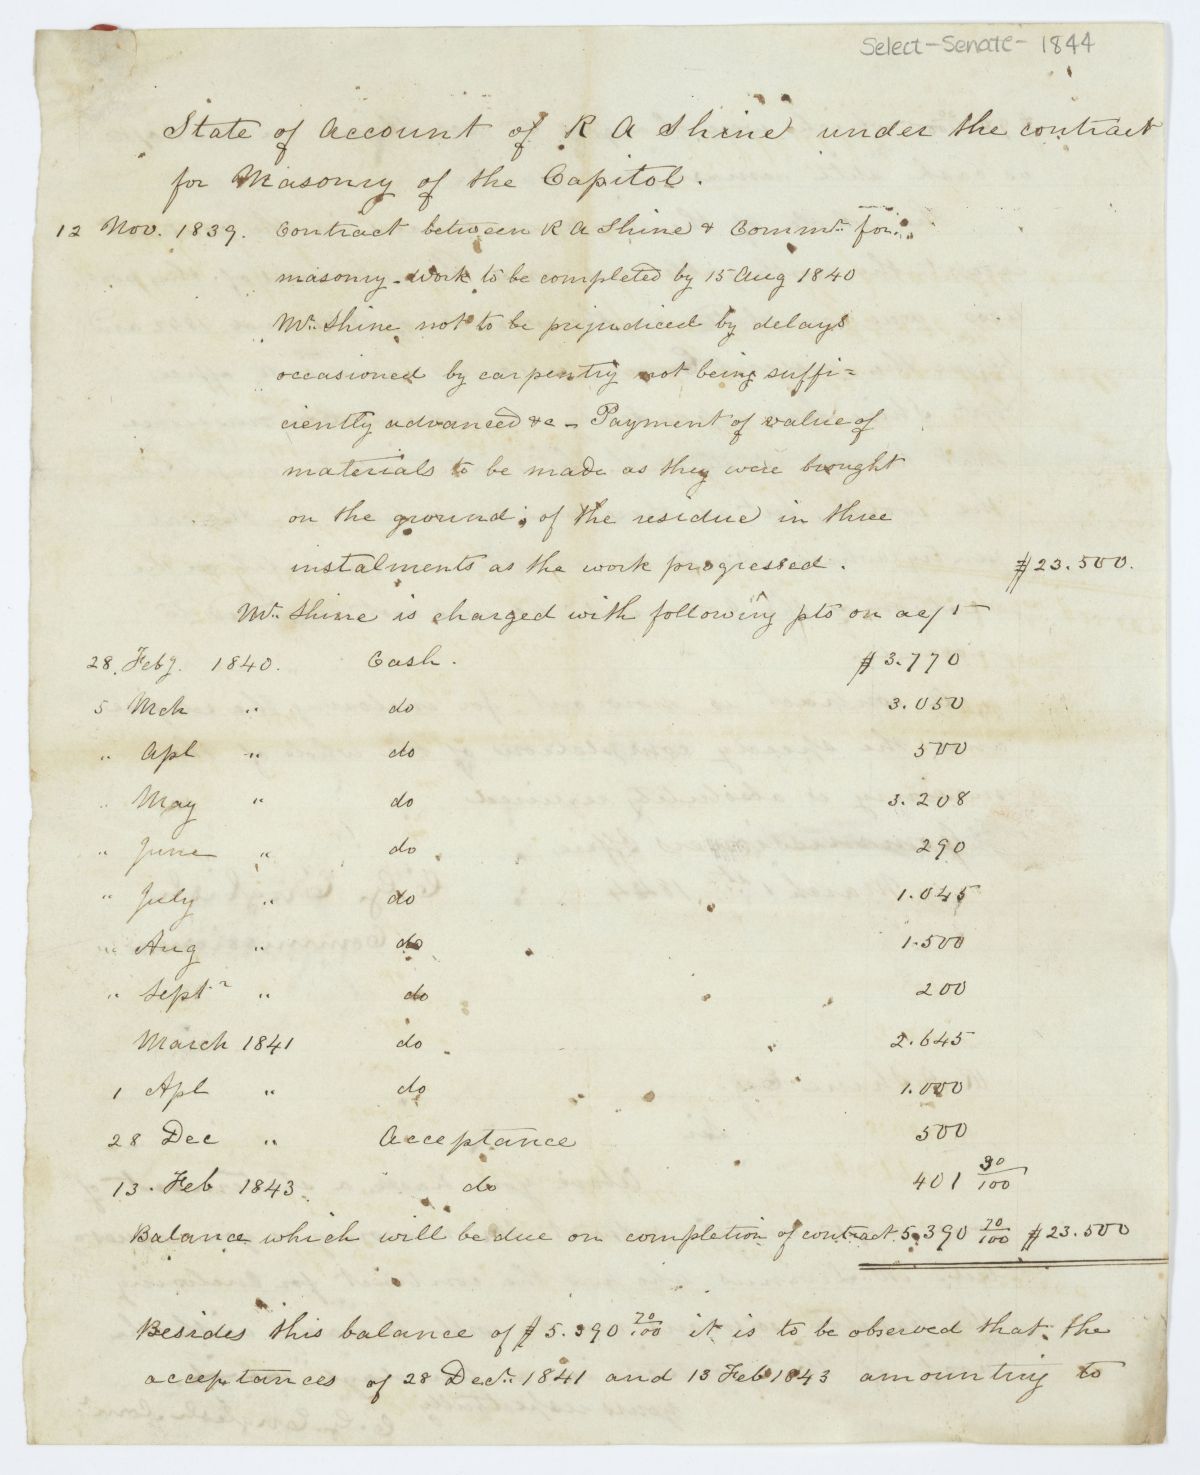 Select-Senate- 1844
State of Account of R A Shine under the contract
for Masonry of the Capitol.
12 Nov. 1839. Contract between R A Shine & Commr. for
masonry-work to be completed by 15 Aug 1840
Mr. Shine not to be prejudiced by delays
occasioned by carpentry not being suffi=
ciently advanced &c - Payment of value of
materials to be made as they were brought
on the ground; of the residue in three
instalments as the work progressed. $23.500.
Mr. Shine is charged with following pts on acct
28. Feby. 1840. Cash. $3.770
5 Mch " do 3.050
" Apl " do 500
" May " do 3.208
" June " do 290
" July " do 1.045
" Aug " do 1.500
" Septr " do 200
March 1841 do 2.645
1 Apl " do 1.000
28 Dec " Acceptance 500
13. Feb 1843 do 401 30/100
Balance which will be due on completion of contract 5.390 70/100 $23.500
Besides this balance of $5.390 70/100 it is to be observed that the
acceptances of 28 Decr. 1841 and 13 Feb 1843 amounting to